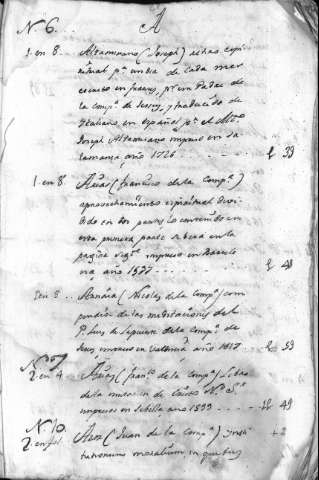 Nº 6. A
1 en 8. Altamirano (Joseph) atlas espi-
ritual pª un dia de cada mes
por un Padre de
la compª de Jesus, y traducido de
Italiano, en español pr el Mtro
Joseph Altamirano impreso en Sa-
lamanca año 1726 33
1. en 8. Arias (Francisco de la Compª)
aprovechamiento espiritual divi-
dido en dos partes lo contenido en
esta primera parte se vera en la
pagina sigte impreso en Barcelo-
na año 1597 48
en 8. Armaia (Nicolas de la Compª) com-
pendio de las meditaciones del
P. Luis de la puente de la Compª de
Jesus impreso en Valencia año 1617 53
Nº
2 en 4. Arias (Franco de la Compª) Libro
de la imitacion de Christo N. Sr.
impreso en Sebilla año 1599 49
Nº 10.
2 en fol. Azor (Juan de la Compª) ynsti-
tutionum moralium in quibus